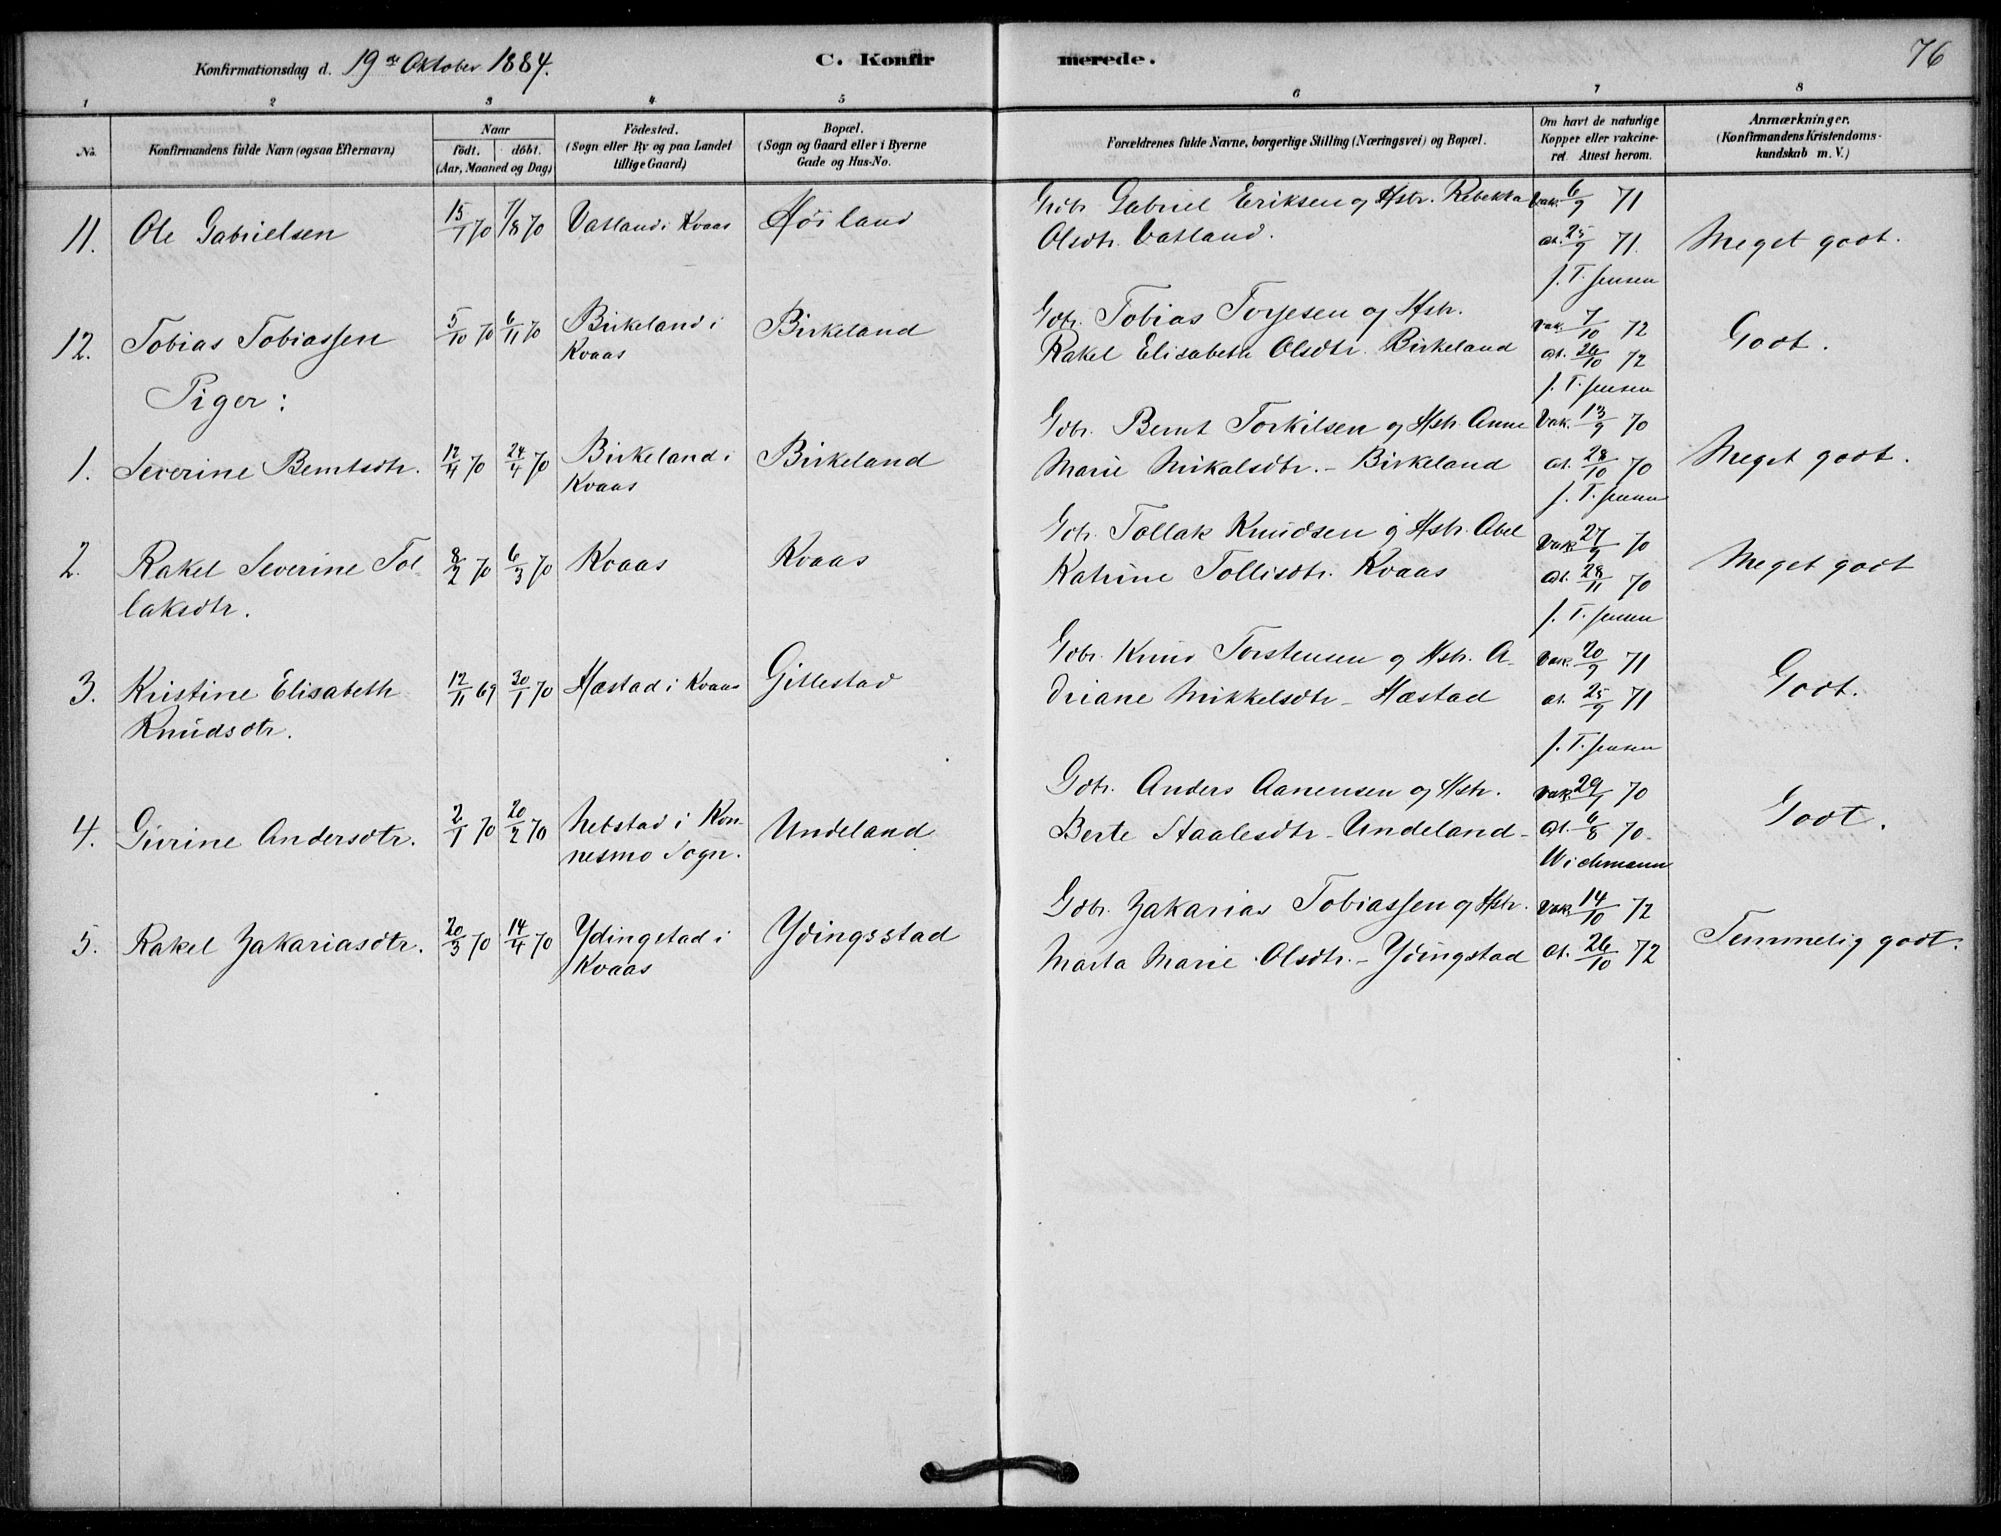 Konfirmationsdag d. 19de Oktober 1884. C. Konfirmerede. 76
1 2 3 4 5 6 7 8
No. Konfirmandens fulde Navn (ogsaa Efternavn) Naar født. døbt. (Aar, Maaned og Dag) Fødested. (Sogn eller By og paa Landet tillige Gaard) Bopæl. (Sogn og Gaard eller i Byerne Gade og Hus-No. Forældrenes fulde Navne, borgerlige Stilling (Næringsvei) og Bopæl. Om havt de naturlige Kopper eller vakcineret. Attest herom. Anmærkninger. (Konfirmandens Kristendomskundskab m. V.)
11. Ole Gabrielsen 15/7 70 7/8 70 Vatland i Kvaas Høiland Gdbr. Gabriel Eriksen og Hstr. Rebekka Vak. 6/9 71
Olsdtr. Vatland. at. 25/9 71. Meget godt.
J. T. Jensen
12. Tobias Tobiassen 5/10 70 6/11 70 Birkeland i Birkeland Gdbr. Tobias Torjesen og Hstr. Vak. 7/10 72
Kvaas Rakel Elisabeth Olsdtr. Birkeland at. 26/10 72 Godt.
J. T. Jensen
Piger:
1. Severine Berntsdtr. 12/4 70 24/4 70 Birkeland i Birkeland Gdbr. Bernt Torkilsen og Hstr. Anne Vak. 13/9 70
Kvaas Marie Mikalsdtr. - Birkeland at. 28/10 70 Meget godt.
J. T. Jensen
2. Rakel Severine Tol- 8/2 70 6/3 70 Kvaas Kvaas Gdbr. Tollak Knudsen og Hstr. Abel Vak. 27/9 70
laksdtr. Katrine Tollisdtr. Kvaas at. 28/11 70 Meget godt
J. T. Jensen
3. Kristine Elisabeth 12/11 69 30/1 70 Hæstad i Kvaas Gillestad Gdbr. Knud Torstensen og Hstr. A- Vak. 20/9 71
Knudsdtr. driane Mikkelsdtr - Hæstad at. 25/9 71 Godt.
J. T. Jensen
4. Gurine Andersdtr. 2/1 70 20/2 70 Nebstad i Kon- Undeland Gdbr. Anders Aanensen og Hstr. Vak. 29/1 70
nesmo Sogn. Berte Staalesdtr - Undeland - at. 6/8 70. Godt.
Wichmann
5. Rakel Zakariasdtr. 20/3 70 14/4 70 Ydingstad i Ydingsstad Gdbr. Zakarias Tobiassen og Hstr. Vak. 14/10 72
Kvaas Marta Marie Olsdtr. - Ydingstad at. 26/10 72 Temmelig godt.